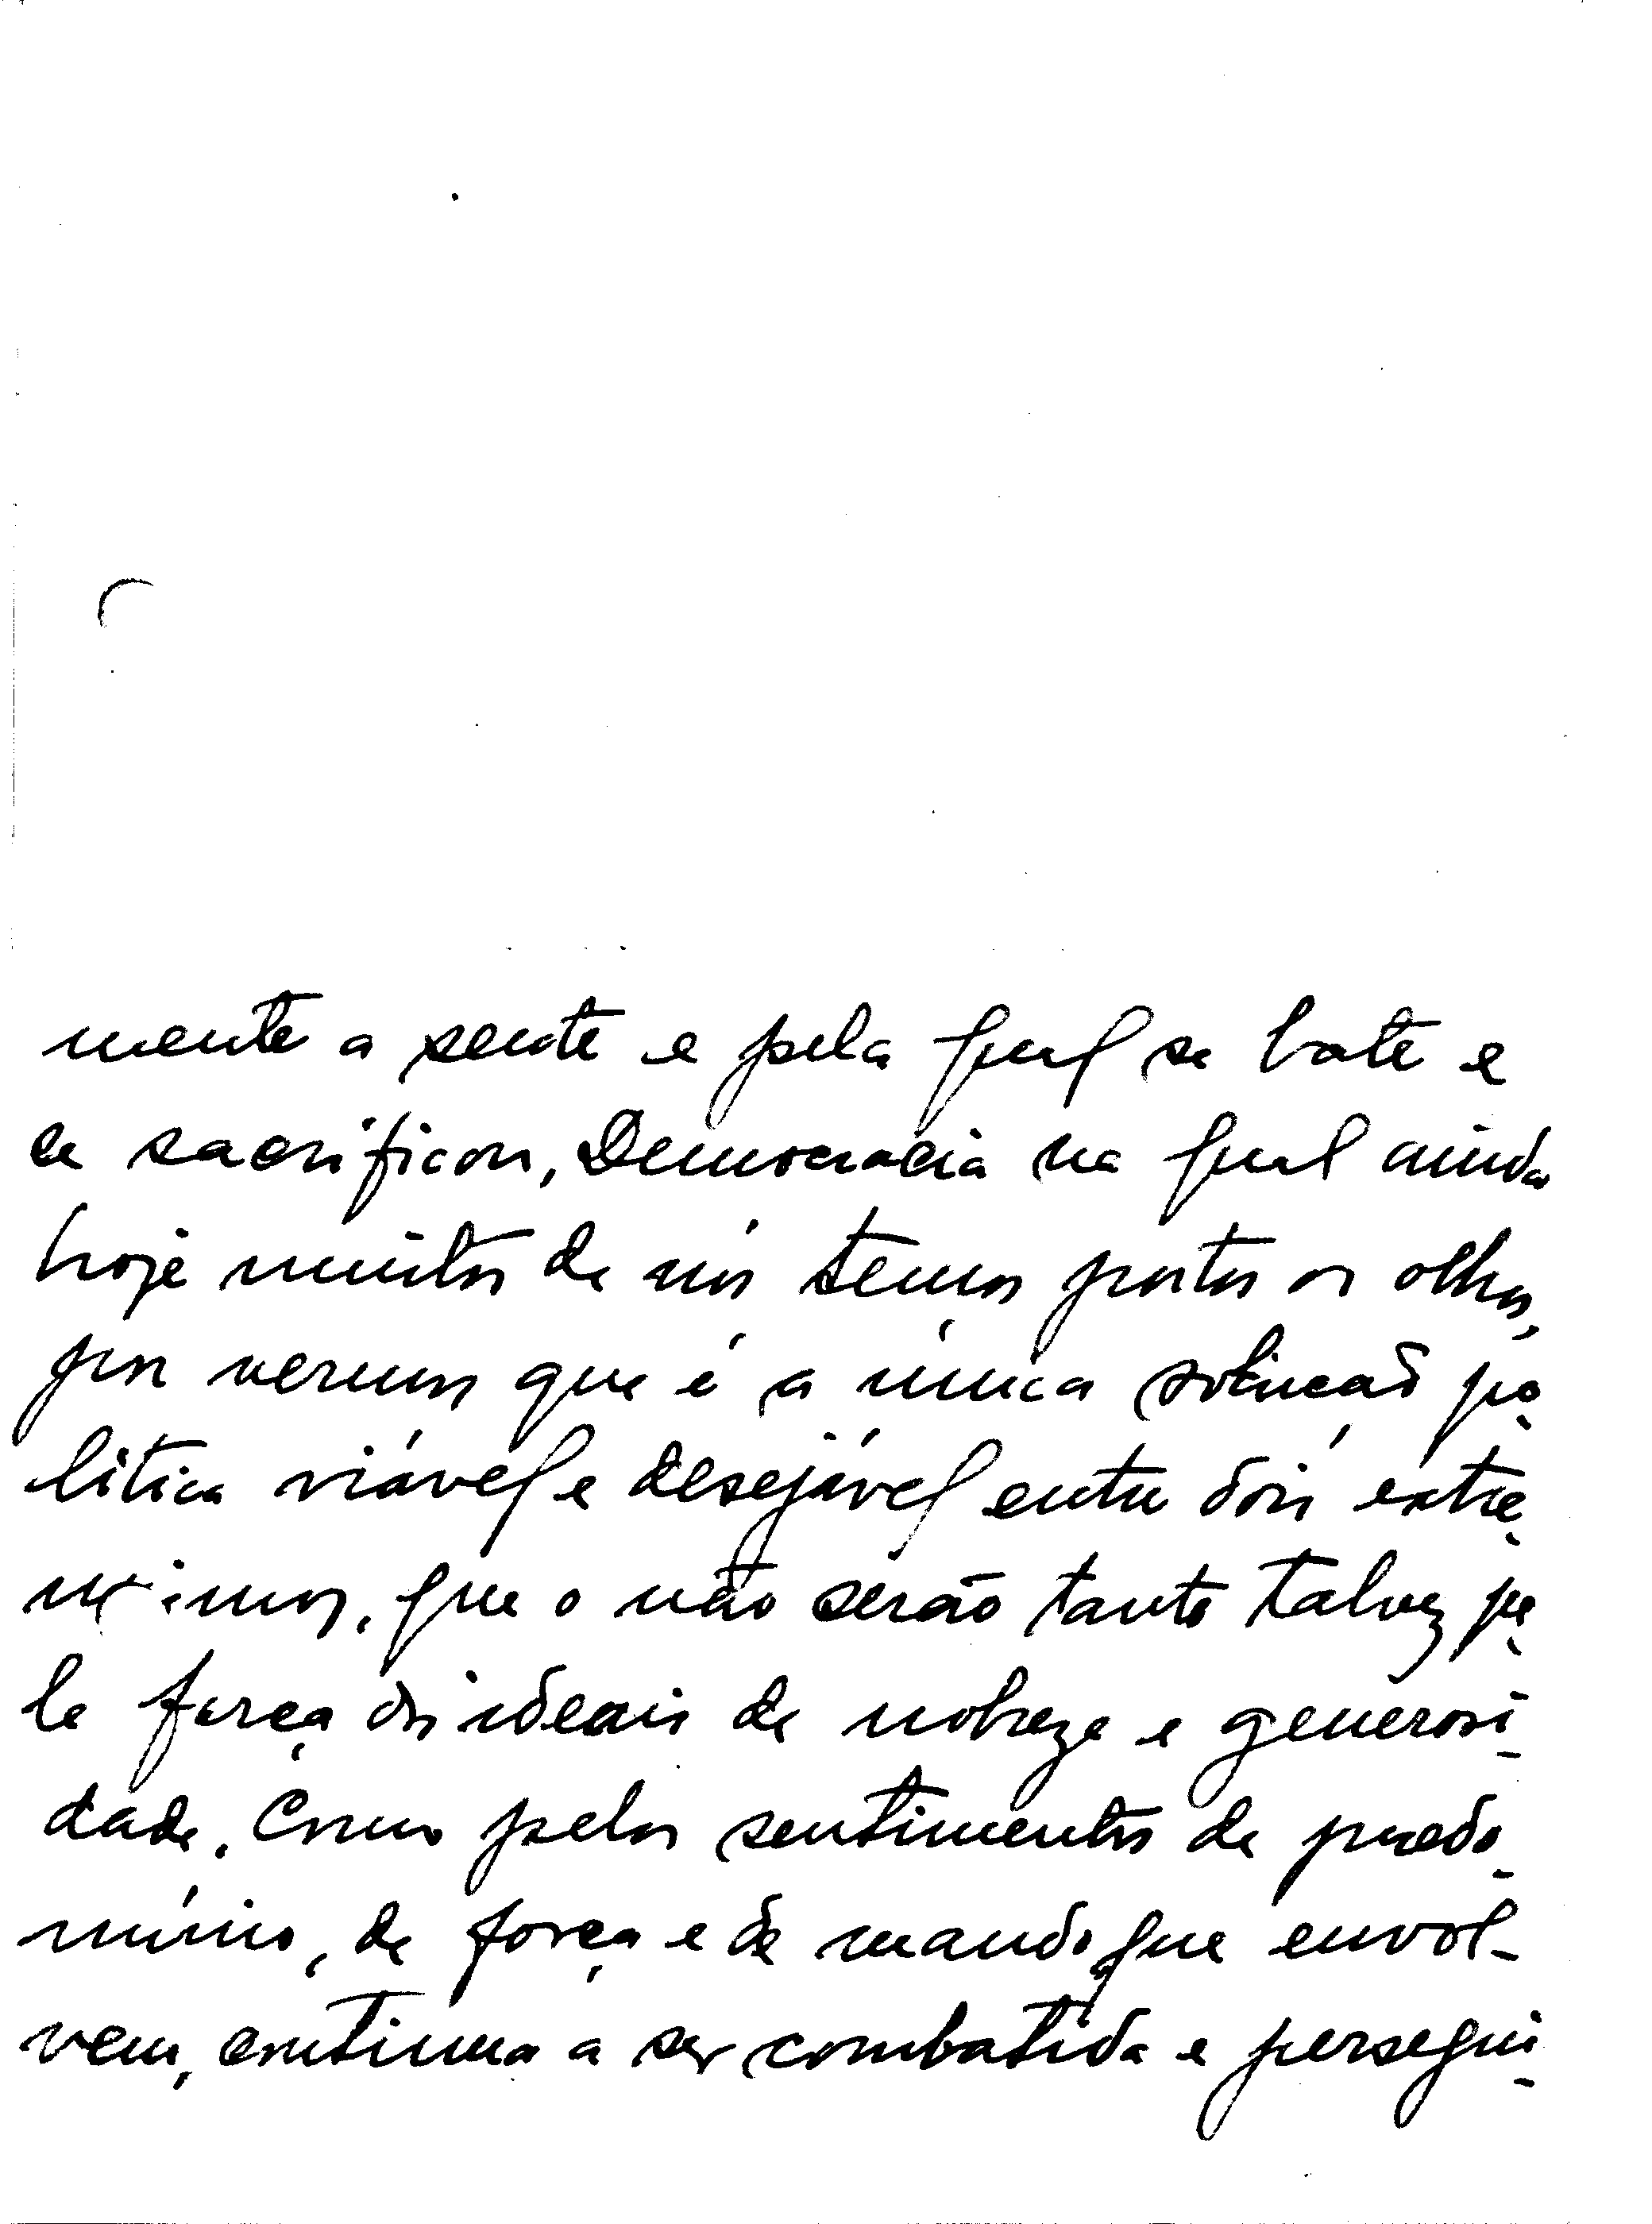 mente a sente e pela qual se bate e
se sacrificou, Democracia na qual ainda
hoje muitos de nós temos postos os olhos,
por vermos que é a única solução po-
lítica viável e desejável entre dois extre-
mismos, que o não serão tanto talvez pe-
la força dos ideais de nobreza e generosi-
dade, como pelos sentimentos de predo-
mínio, de força e de mando que envol-
vem, continua a ser combatida e persegui-